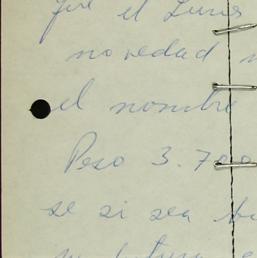 fué el Lunes
novedad
el nombre
Peso 3.700
se si sea